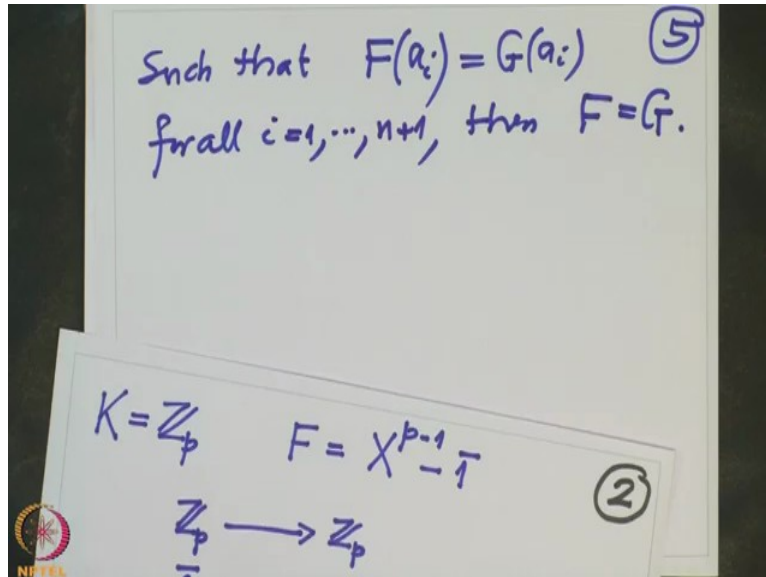 Such that F(aᵢ) = G(aᵢ)
⑤
for all i = 1, ..., n+1, then F = G.
K = ℤₚ F = X^{p-1} - 1̄
②
ℤₚ ⟶ ℤₚ
NPTEL